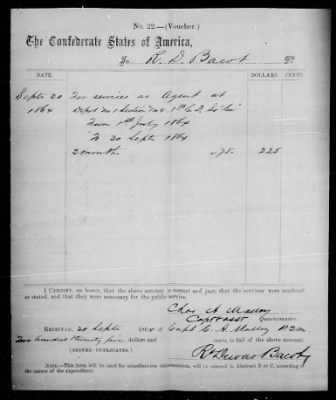 No. 22.—(Voucher.)
The Confederate States of America,
To R. D. Bacot Dr.
DATE. DOLLARS. CENTS.
Septr 30 For services as Agent at
1864 Depot No 1 Section No 4, 1st C. D. So Ca
From 1st July 1864
To 30 Septr 1864
3 months 75 225
I CERTIFY, on honor, that the above account is correct and just; that the services were rendered
as stated, and that they were necessary for the public service.
Chas A Malloy
Capt
Quartermaster.
RECEIVED, 30 Septr 1864 of Capt C. A. Malloy
Two hundred twenty five dollars and cents, in full of the above account.
(SIGNED DUPLICATES.) R. Dewar Bacot
NOTE.—This form will be used for miscellaneous disbursements, will be entered in Abstract B or C, according to
the nature of the expenditure.